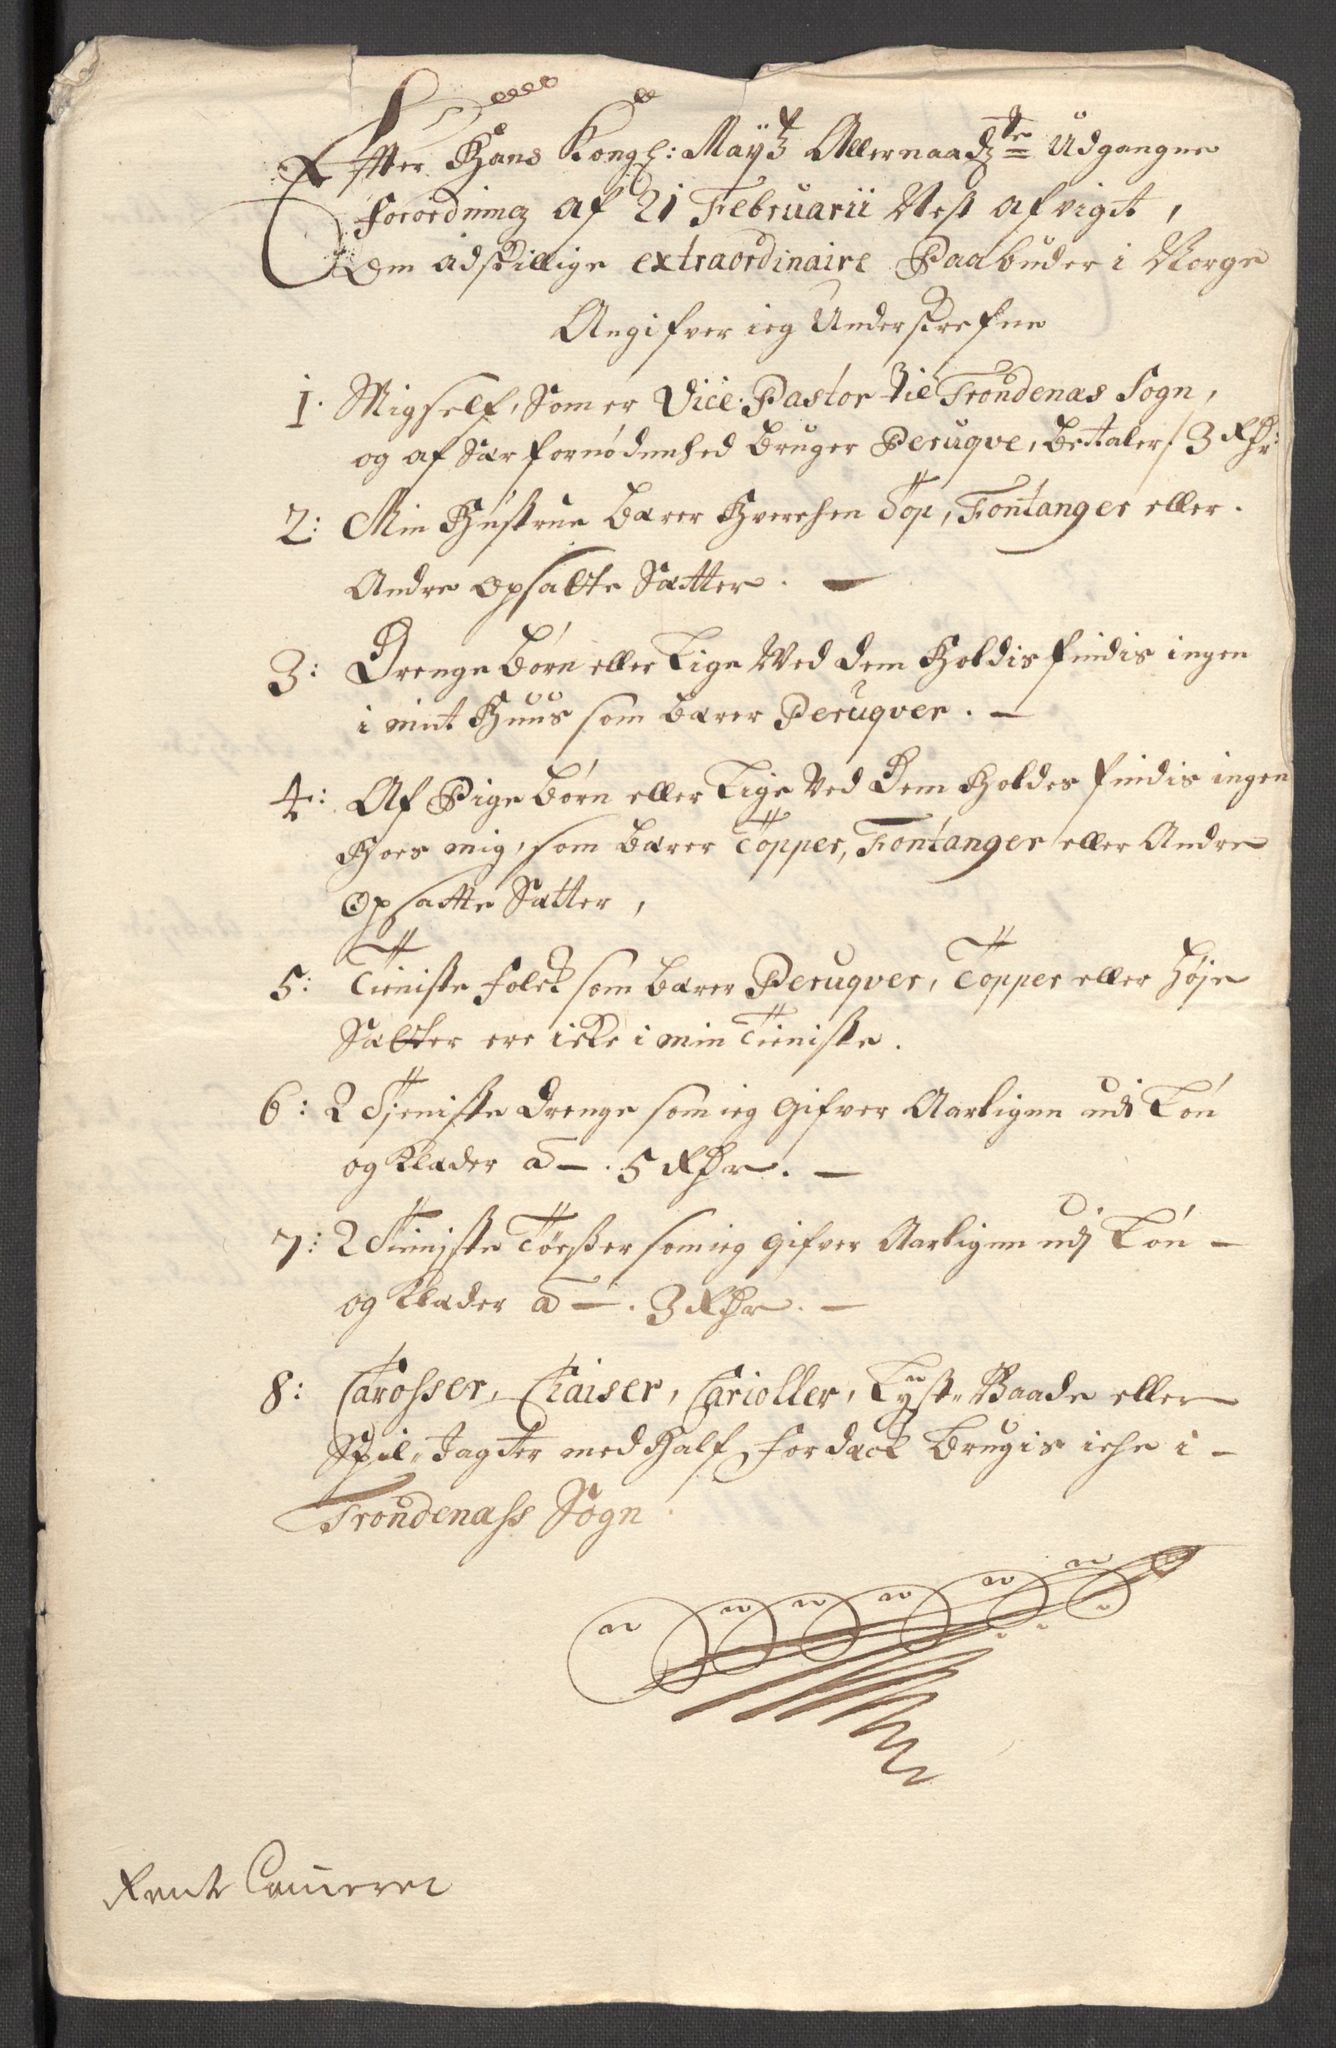 Effter Hans Kongl: Maÿtz Allernaadgste Udgangne
forordning af 21 Februarii Nest afvigt,
Om adskillige extraordinaire Paabuder i Norge
Angifver ieg Underskrefne
1. Migself, Som er Vice-Pastor til Trondenæs Sogn,
og af Sær fornødenhed Bruger Peruqve, Bettaler / 3 Rdr:
2: Min Hustrue Bærer Hverchen Top, Fontanger eller
Andre opsatte Sætter. —
3: Drenge Børn eller Lige Ved dem Holdis findis ingen
i mit Huus som bærer Peruqver. —
4: Af Pige Børn eller Lige Ved Dem Holdes findis ingen
Hoes mig, som bærer Topper, Fontanger eller Andre
Opsatte Sætter,
5: Tieniste folck som bærer Peruqver, Topper eller høje
Sætter ere icke i min Tieniste.
6: 2 Tjeniste Drenge som ieg Gifver Aarligen udi Løn
og Klæder a —. 5 Rdr. —
7: 2 Tieniste Tøesser som ieg Gifver Aarligen udj Løn —
og Klæder a —. 3 Rdr. —
8: Carosser, Chaiser, Carioller, Lyst-Baade eller
Spil-Jagter med Half fordæck Brugis iche i —
Trondenæss Sogn.
Rente Cammeret